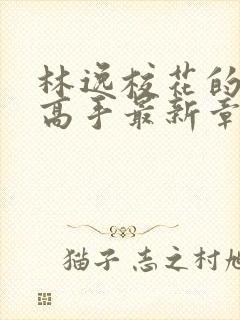 林逸校花的
高手最新章
猫子 志之村旭